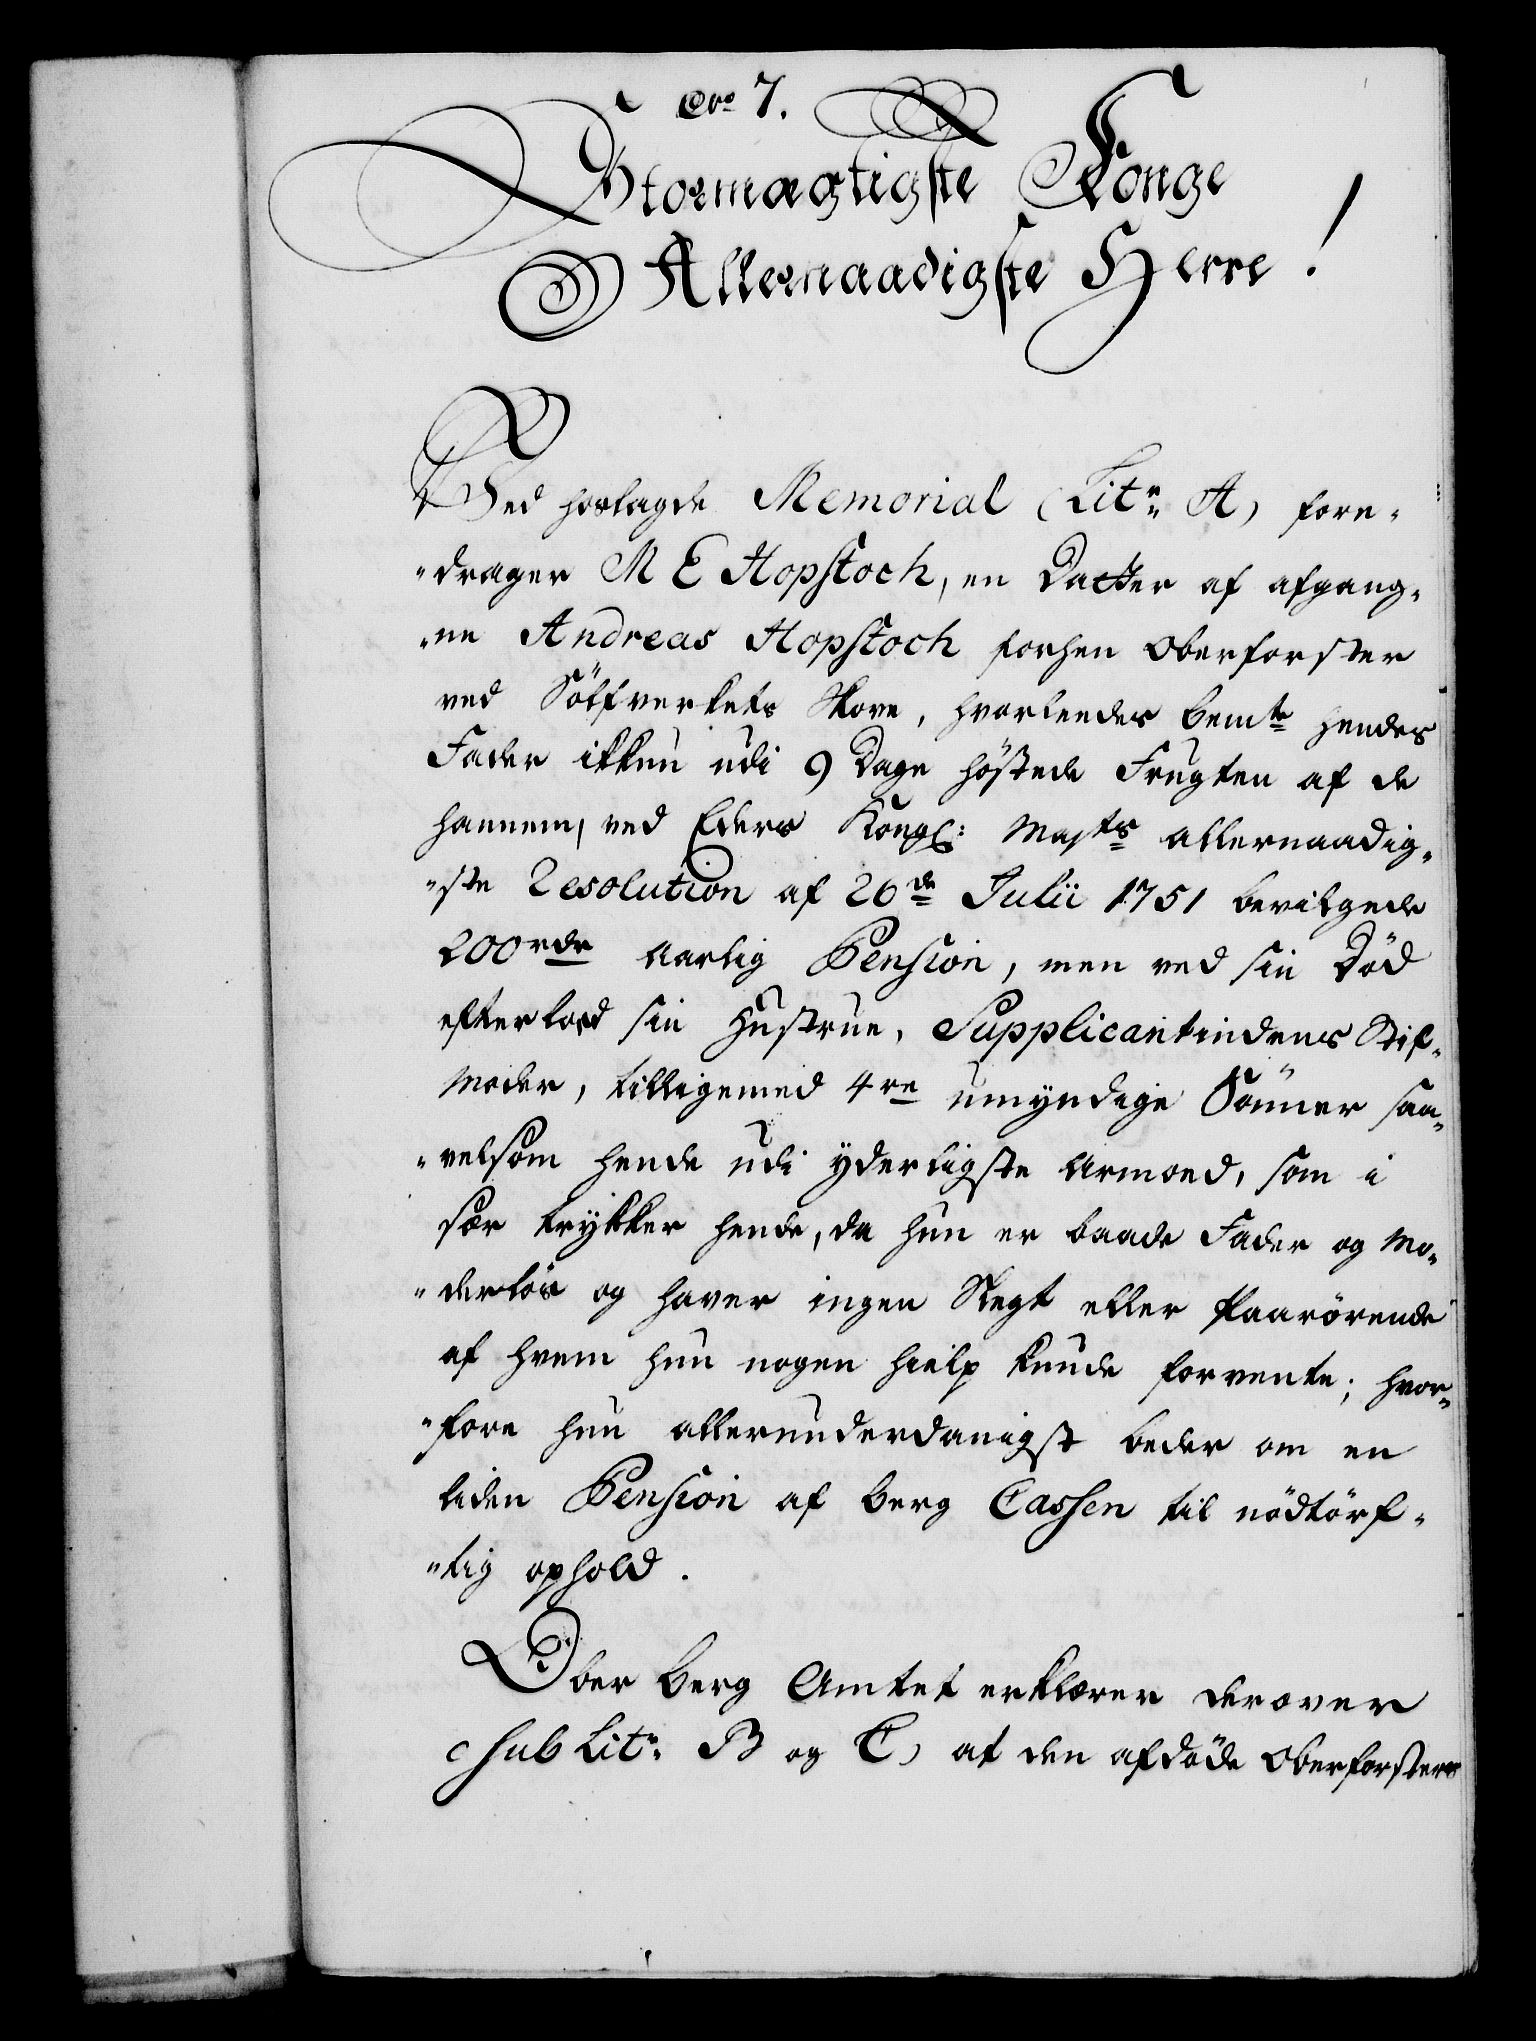 No 7.
Stormægtigste Konge
Allernaadigste Herre!
Ved hoslagde Memorial (Litr: A) fore-
"drager M E Hopstoch, en Datter af afgang-
"ne Andreas Hopstoch forhen Oberforster
ved Sölfverkets Skove, hvorleedes bemte hendes
Fader ikkun udi 9 Dage höstede Frugten af de
hannem, ved Eders Kongl: Majts allernaadig-
"ste Resolution af 26de Julii 1751 bevilgede
200rdr aarlig Pension, men ved sin Död
efterlod sin Hustrue, Supplicantindens Stif-
Moder, tilligemed 4re umyndige Sönner saa-
"velsom hende udi yderligste Armoed, som i
sær trykker hende, da hun er baade Fader og Mo-
"derlös og haver ingen Slegt eller Paarörende
af hvem hun nogen hielp kunde forvente; hvor-
"fore hun allerunderdanigst beder om en
liden Pension af Berg Cassen til nödtörf-
"tig ophold.
Ober Berg Amtet erklærer derover
(sub Litr: B og C) at den afdöde Oberforster